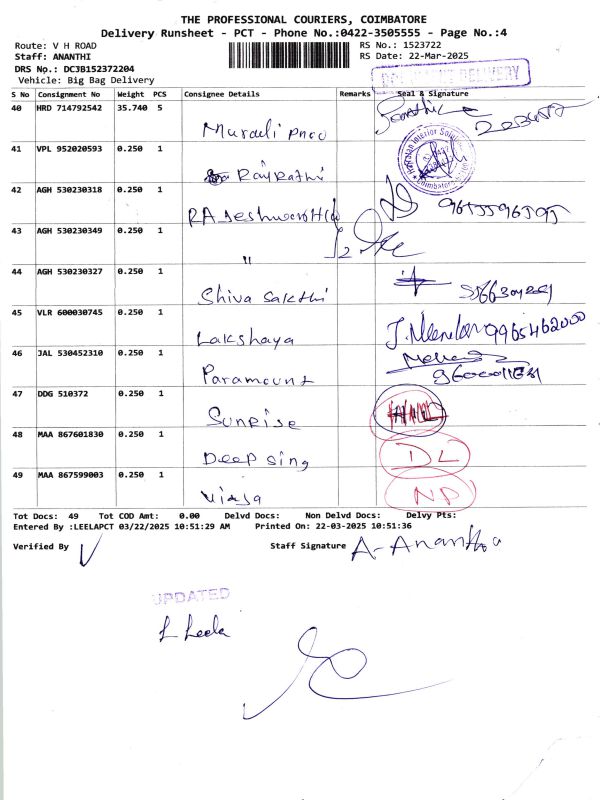 THE PROFESSIONAL COURIERS, COIMBATORE
Delivery Runsheet - PCT - Phone No.:0422-3505555 - Page No.:4
Route: V H ROAD
RS No.: 1523722
Staff: ANANTHI
RS Date: 22-Mar-2025
DRS No.: DCJB152372204
Vehicle: Big Bag Delivery
DELIVERY
S No Consignment No Weight PCS Consignee Details Remarks Seal & Signature
40 HRD 714792542 35.740 5
Murauli
41 VPL 952020593 0.250 1
Raj Rathi
Interior
Coimbatore
42 AGH 530230318 0.250 1
RAJeshwari
43 AGH 530230349 0.250 1
"
44 AGH 530230327 0.250 1
Shiva Sakthi
45 VLR 600030745 0.250 1
Lakshaya 9965462000
46 JAL 530452310 0.250 1
Paramount
47 DDG 510372 0.250 1
Sunrise
48 MAA 867601830 0.250 1
Deep Sing DL
49 MAA 867599003 0.250 1
NP
Tot Docs: 49 Tot COD Amt: 0.00 Delvd Docs: Non Delvd Docs: Delvy Pts:
Entered By :LEELAPCT 03/22/2025 10:51:29 AM Printed On: 22-03-2025 10:51:36
Verified By Staff Signature A-Anantha
UPDATED
L Leela